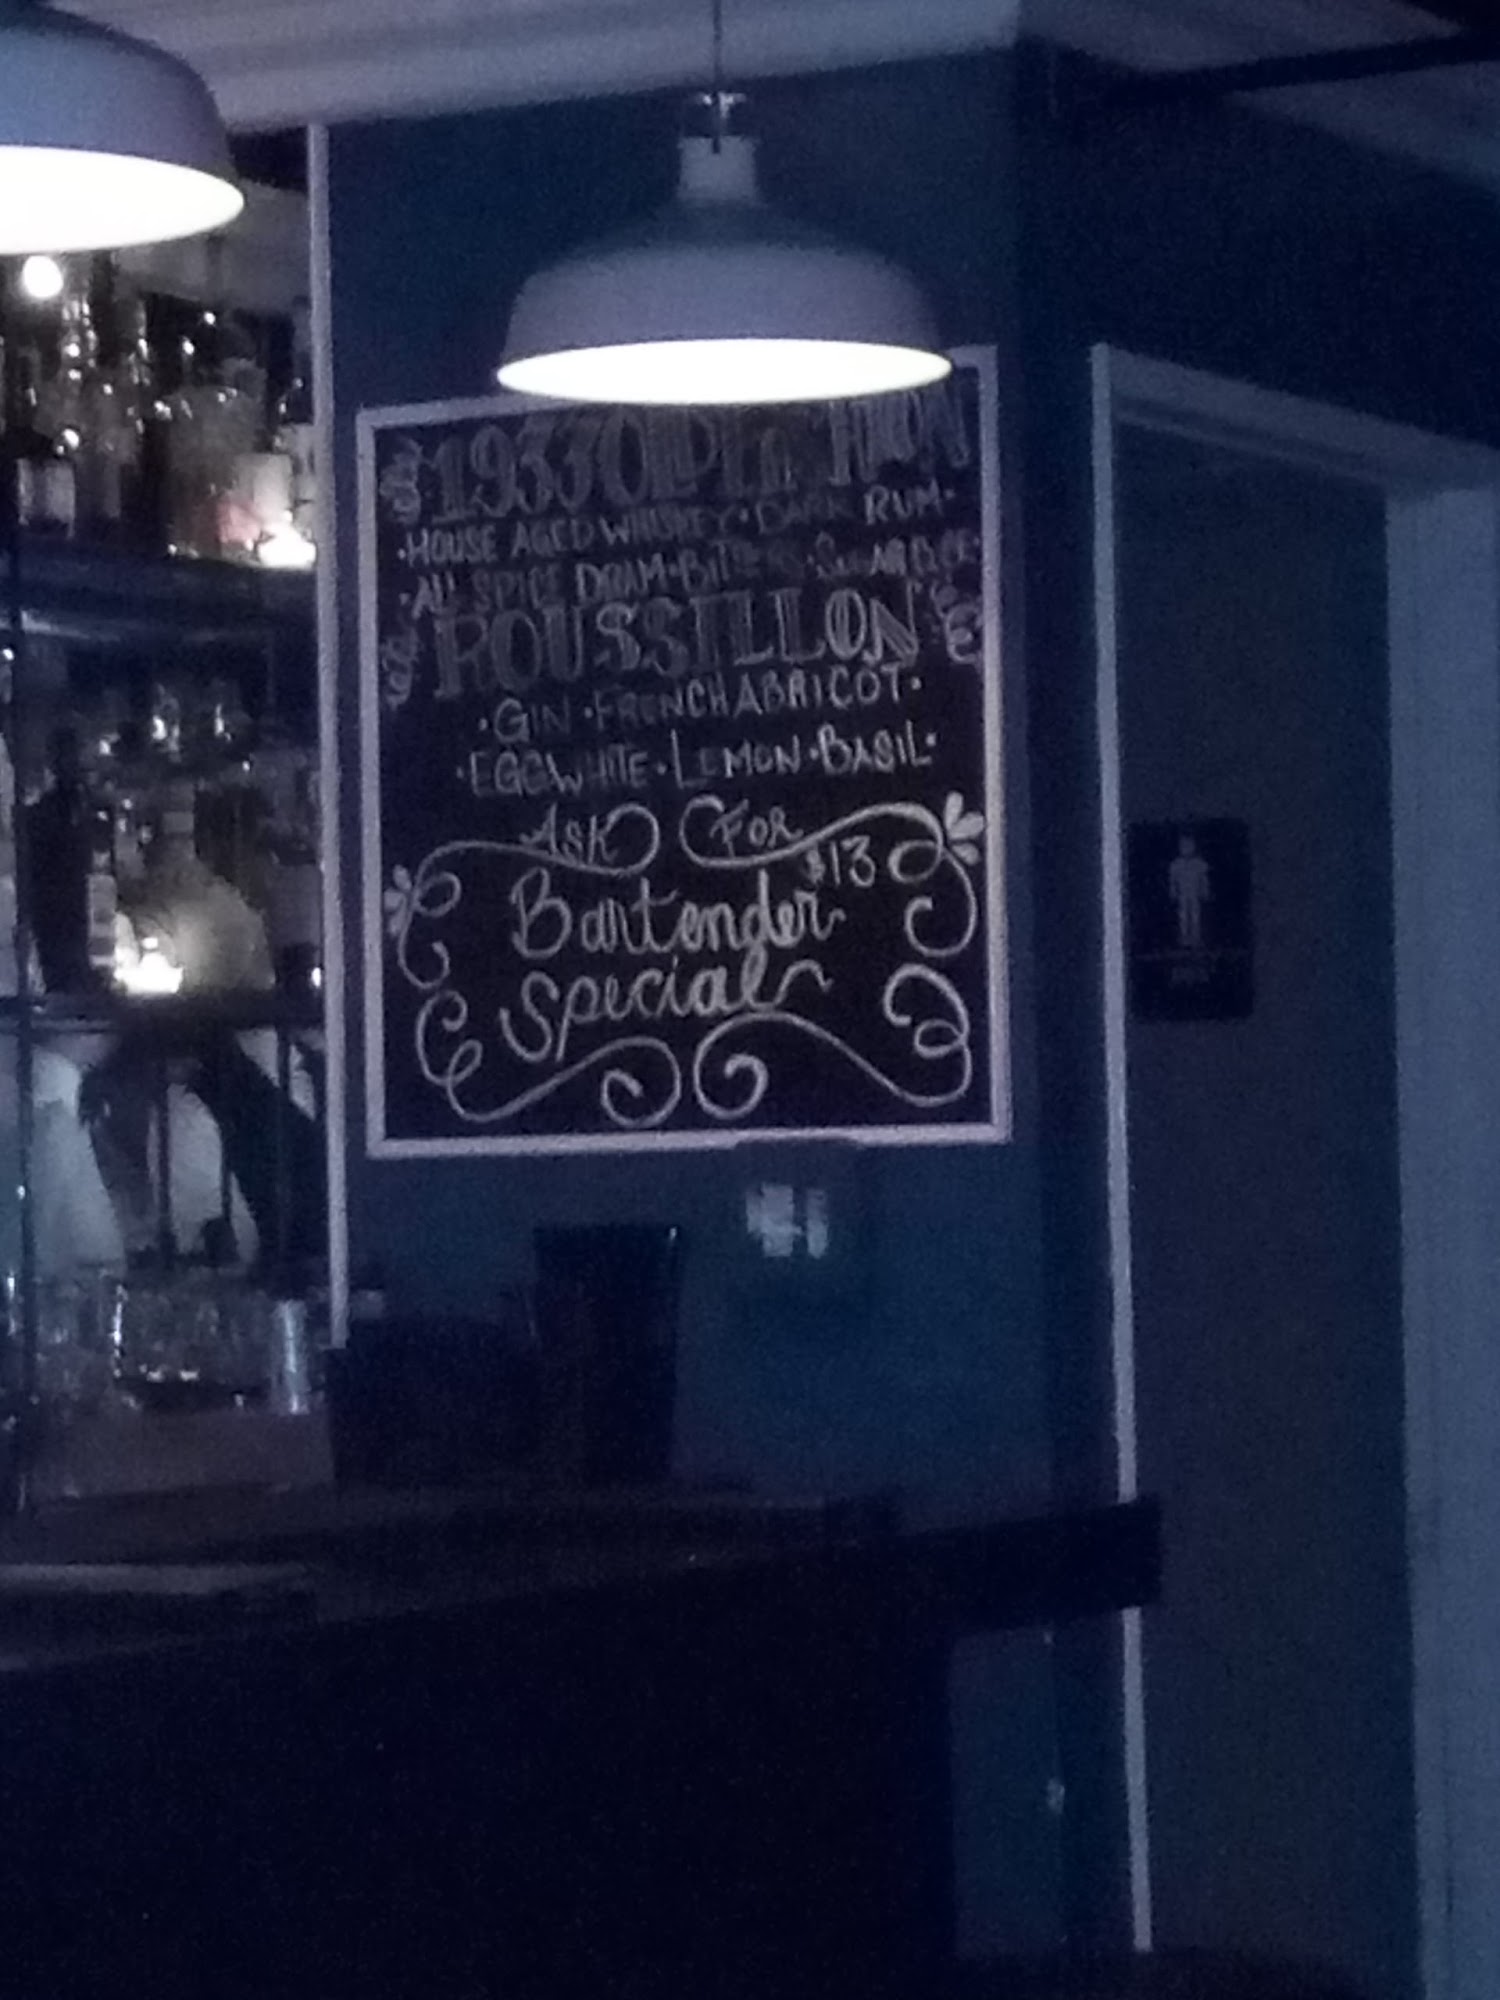 1933 OLD FASHION
·HOUSE AGED WHISKEY·DARK RUM·
·ALL SPICE DRAM·BITTERS·SUGAR CUBE·
ROUSSILLON
·GIN·FRENCH ABRICOT·
·EGGWHITE·LEMON·BASIL·
ASK FOR
$13
Bartender
Special